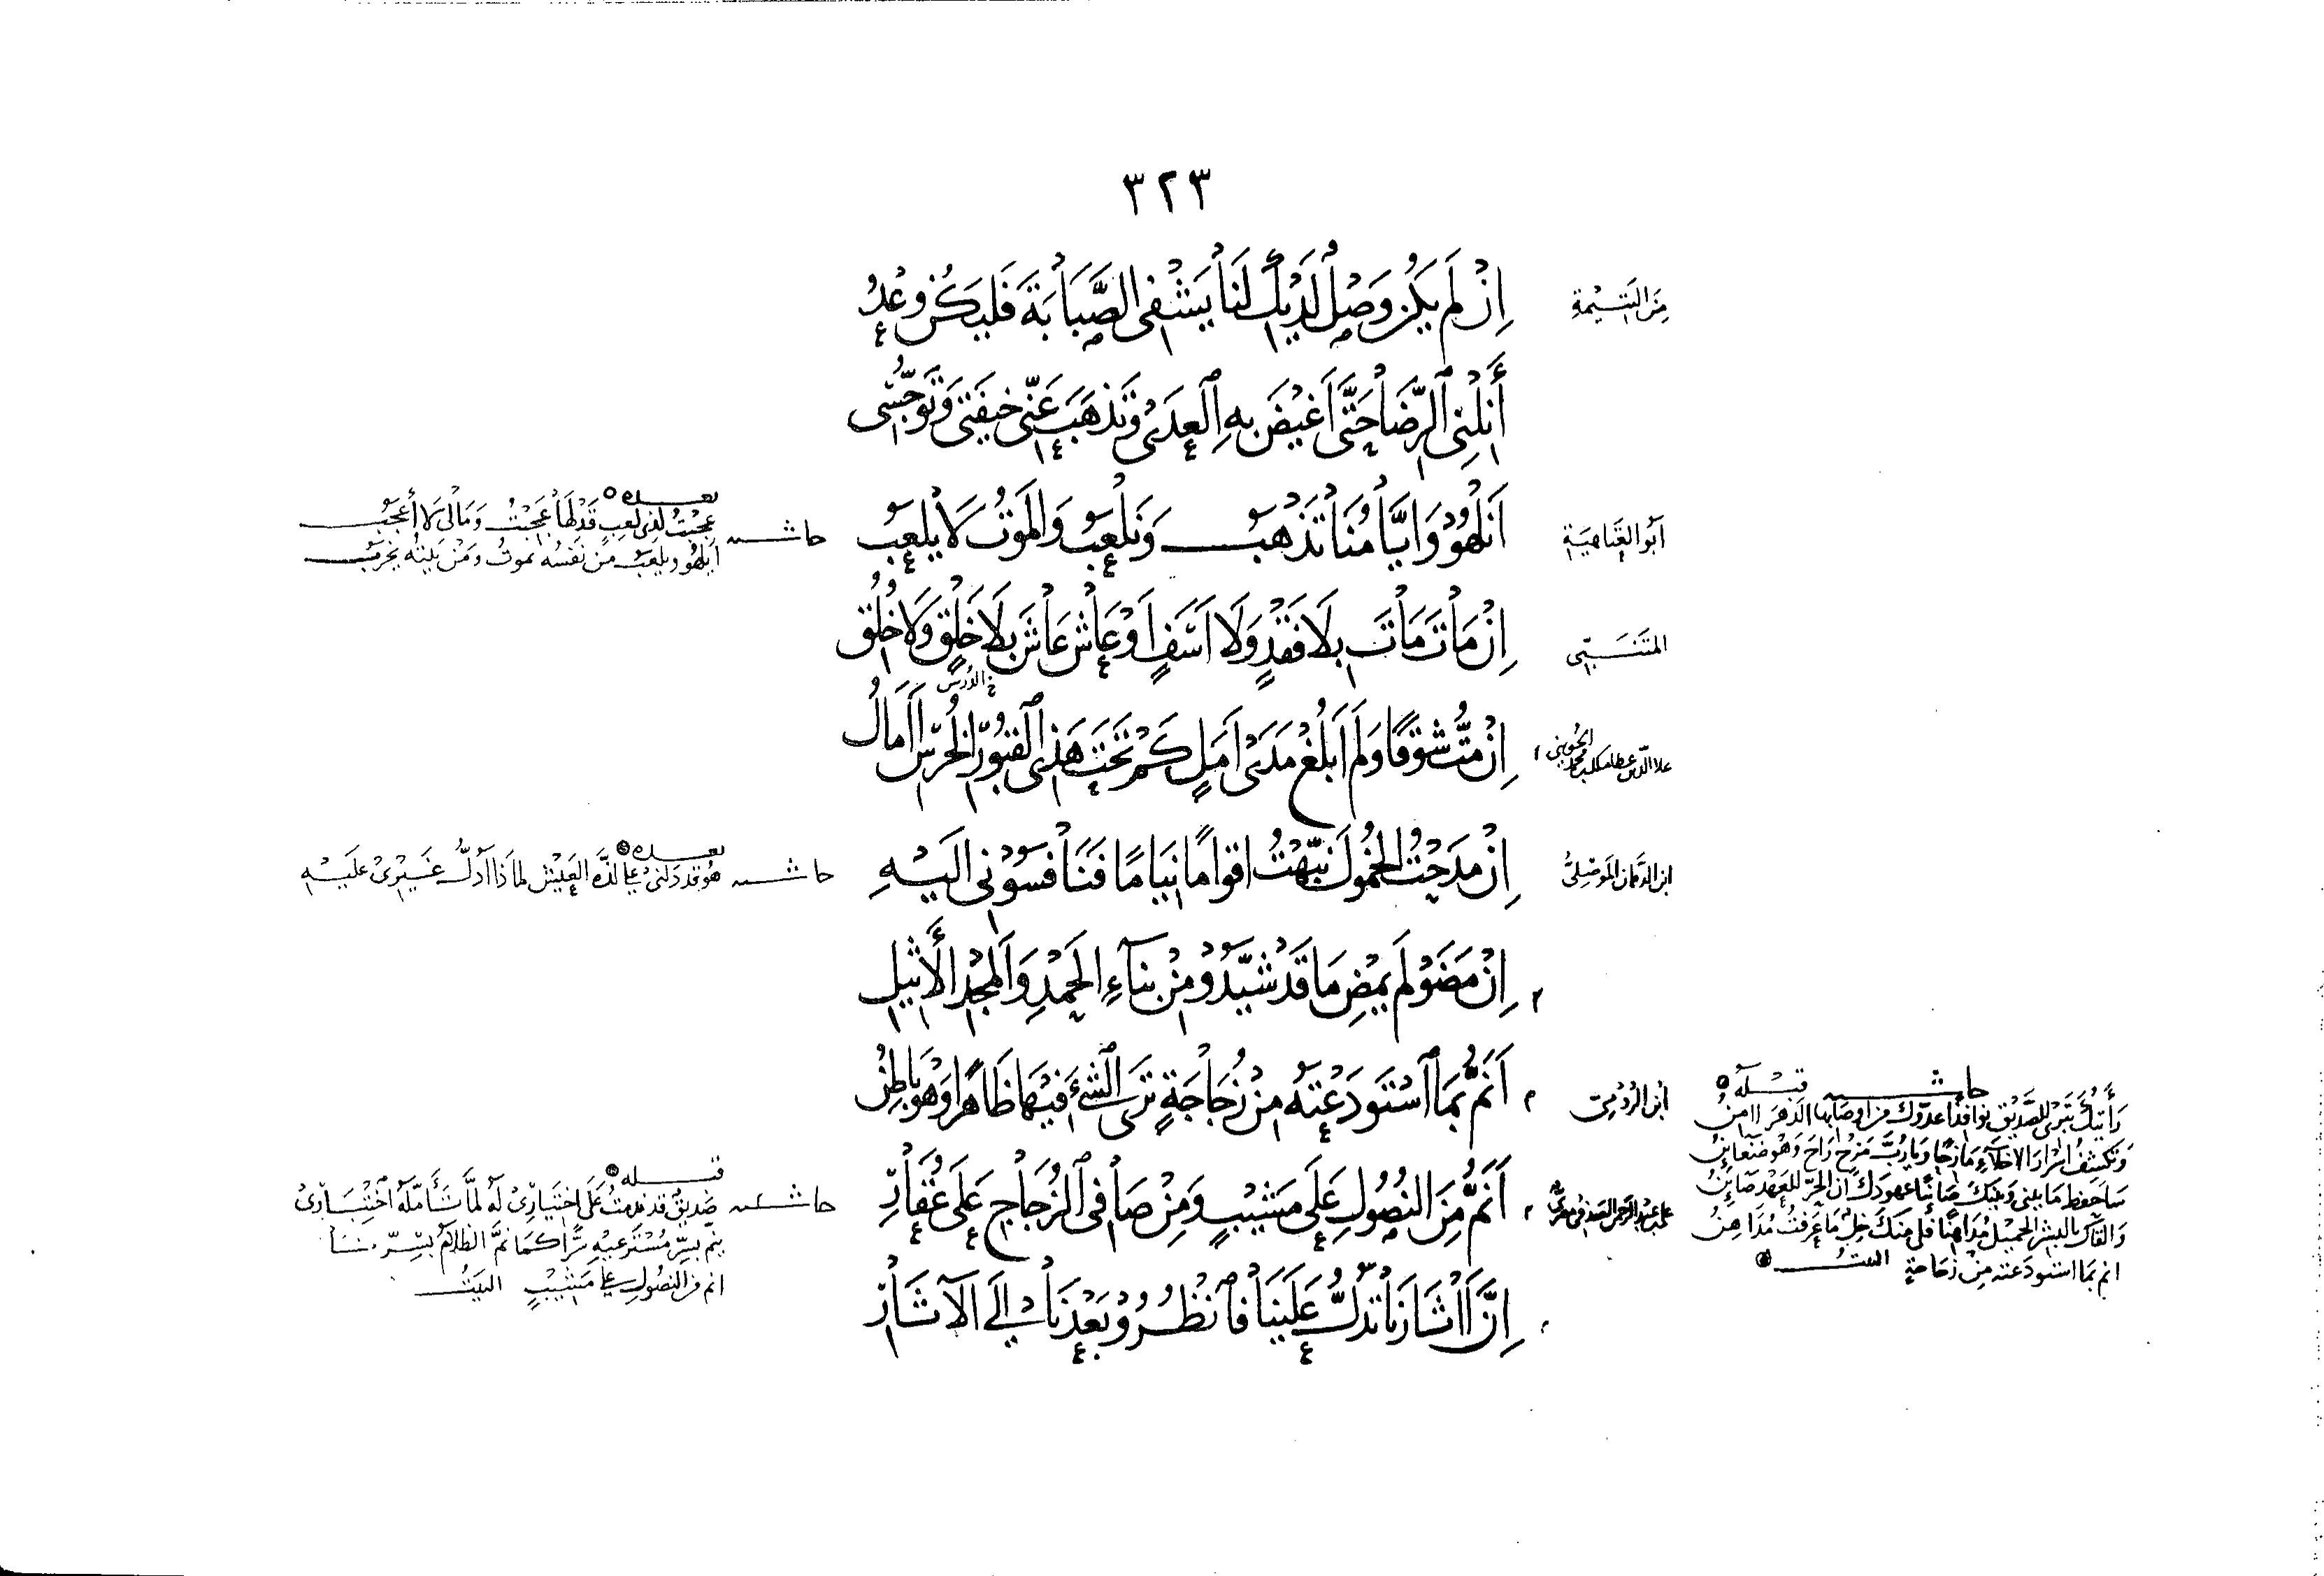 ٣٢٣
مِنَ اليَتِيْمَةِ
إِنْ لَم يَكُنْ وَصْلٌ لَدَيْكَ لَنَا يَشْفِي الصَّبَابَةَ فَليَكُنْ وَعْدُ
أَنِلْنِي الرِّضَا حَتَّى أَغِيْضَ بِهِ العِدَى وَتَذْهَبَ عَنِّي خِيفَتِي وَتَوَجُّسِي
أَبُو العَتَاهِيَةِ
أَنَلْهُو وَايَّامُنَا تَذْهَبُ وَنَلْعَبُ وَالمَوتُ لَا يَلْعَبُ
حاشية
بعده
عَجِبْتُ لِذِي لَعِبٍ قَدْ لَهَا عَجِبْتُ وَمَا لِي لَا أَعْجَبُ
أيَلهُو وَيلعَبُ مَن نَفسُه تموتُ وَمَنْ بَيتُه يخرَبُ
المتَنَبِّي
إِنْ مَاتَ مَاتَ بِلَا فَقْدٍ وَلَا أَسَفٍ أَوْ عَاشَ عَاشَ بِلَا خَلْقٍ وَلَا خُلُقِ
علا الدّين عطا ملك بن محمد الجُوَيني
إِنْ مِتُّ شَوْقًا وَلَم أَبلُغْ مَدَى أَمَلٍ كَمْ تَحْتَ هَذِي القُبُوْرِ الخُرْسِ آمَالُ
خ الدُّرسِ
ابن الدَّهَان المَوصِليُّ
إِنْ مَدَحْتُ الخمُولَ نَبَّهْتُ اقوَامًا نِيَامًا فَنَافَسُوْنِي إِلَيْهِ
حاشية
بعده
هُوَ قد دَلَّنِي عَلى لذَّه العَيْشِ لماذَا أدلُّ غَيْرِي عَلَيْهِ
إِنْ مَضَوْا لَم يَمْضِ مَا قَدْ شَيَّدُوْا مِنْ بِنَاءِ الحَمْدِ وَالمجْدِ الأَثِيْلِ
ابْن الرُّوْمِيّ
أَنَمُّ بِمَا اسْتَودَعْتَهُ مِنْ زُجَاجَةٍ تَرَى الشَّيْءَ فِيْهَا ظَاهِرًا وَهْوَ بَاطِنُ
حاشية قبله
رَأَيْتُكَ تَبْرِي للصَّدِيْقِ نوافذًا عدوّك مِن اوصَابِهَا الدَّهْرَ امِنُ
وَتَكشِفُ اسْرَارَ الاخِلَّاءِ مَازِحًا وَيَا رُبَّ مَزْحٍ رَاحَ وَهْوَ ضَغَائِنُ
سَاحفظ مَا بيني وَبَيْنَكَ صَائِنًا عهودَكَ انَّ الحُرَّ للعَهْدِ صَائِنُ
وَالقَاكَ بالبشْرِ الجميْلِ مُدَاهِنًا فَلي مِنكَ خِلٌّ مَا عَرَفتُ مُدَاهِنُ
انم بمَا استودَعته مِنْ زجَاجَةٍ البيت
أَنَمُّ مِنَ النُّصُولِ عَلَى مَشِيْبٍ وَمِنْ صَافِي الزُّجَاجِ عَلَى عُقَارِ
حاشية
قبله
صَدِيْقٌ قد نَدِمتُ عَلَى اخْتِيَارِي لَه لَمَّا تَأَمَّلَهُ اخْتِبَارِي
ينمّ بسِرِّ مُسْتَرعِيْهِ سِرًّا كَمَا نَمَّ الظلَامُ بِسِرِّ نَارِ
انم من النصُولِ على مَشِيْبٍ البَيْتُ
إِنَّ آثَارَنَا تَدُلُّ عَلَيْنَا فَانْظُرُوْا بَعْدَنَا إِلَى الآثَارِ